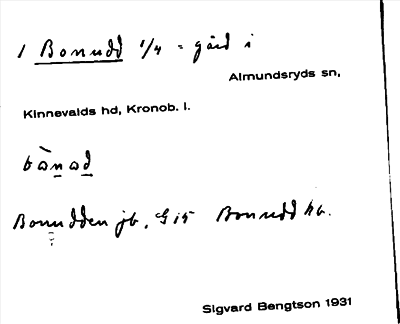 1 Bonudd 1/4 = gård i
Almundsryds sn,
Kinnevalds hd, Kronob. l.
bònàd
Bonudden jb. G 15 Bonudd hb.
Sigvard Bengtson 1931